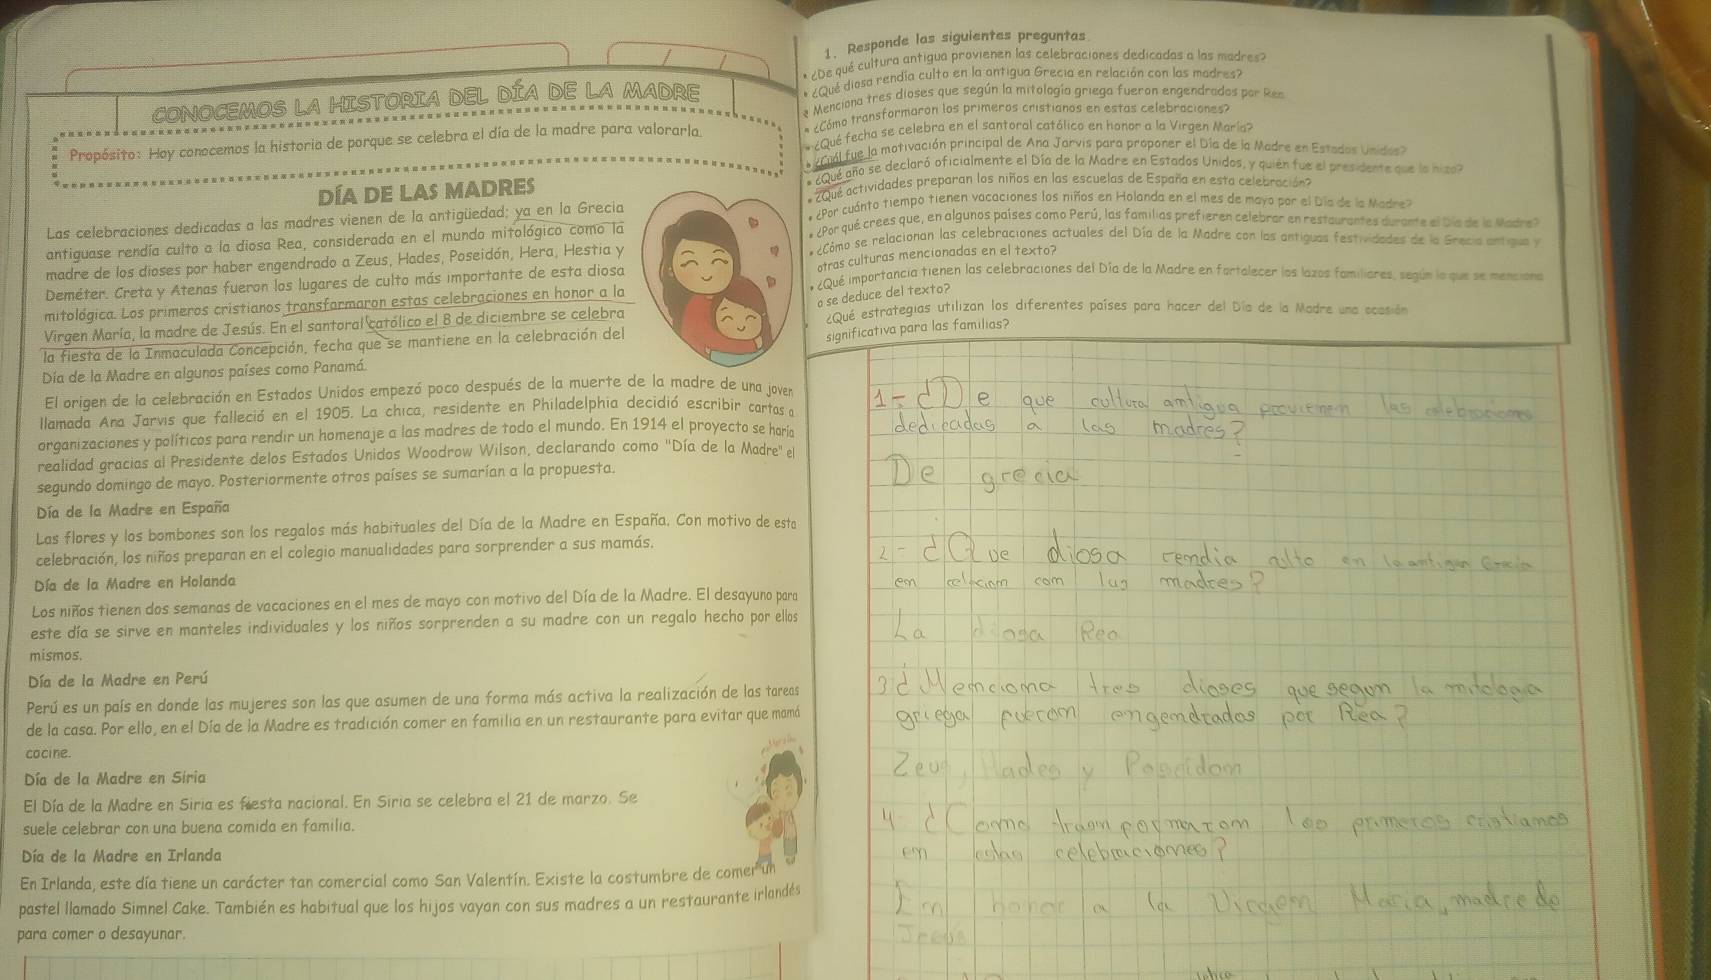 CONOCEMOS LA HISTORIA DEL DÍA DE LA MADRE
Propósito: Hoy conocemos la historia de porque se celebra el día de la madre para valorarla.
DÍA DE LAS MADRES
Las celebraciones dedicadas a las madres vienen de la antigüedad; ya en la Grecia
antiguase rendía culto a la diosa Rea, considerada en el mundo mitológico como la
madre de los dioses por haber engendrado a Zeus, Hades, Poseidón, Hera, Hestia y
Deméter. Creta y Atenas fueron los lugares de culto más importante de esta diosa
mitológica. Los primeros cristianos transformaron estas celebraciones en honor a la
Virgen María, la madre de Jesús. En el santoral católico el 8 de diciembre se celebra
la fiesta de la Inmaculada Concepción, fecha que se mantiene en la celebración del
Día de la Madre en algunos países como Panamá.
El origen de la celebración en Estados Unidos empezó poco después de la muerte de la madre de una joven
llamada Ana Jarvis que falleció en el 1905. La chica, residente en Philadelphia decidió escribir cartas a
organizaciones y políticos para rendir un homenaje a las madres de todo el mundo. En 1914 el proyecto se haría
realidad gracias al Presidente delos Estados Unidos Woodrow Wilson, declarando como "Día de la Madre" el
segundo domingo de mayo. Posteriormente otros países se sumarían a la propuesta.
Día de la Madre en España
Las flores y los bombones son los regalos más habituales del Día de la Madre en España. Con motivo de esta
celebración, los niños preparan en el colegio manualidades para sorprender a sus mamás.
Día de la Madre en Holanda
Los niños tienen dos semanas de vacaciones en el mes de mayo con motivo del Día de la Madre. El desayuno para
este día se sirve en manteles individuales y los niños sorprenden a su madre con un regalo hecho por ellos
mismos.
Día de la Madre en Perú
Perú es un país en donde las mujeres son las que asumen de una forma más activa la realización de las tareas
de la casa. Por ello, en el Día de la Madre es tradición comer en familia en un restaurante para evitar que mamá
cocine.
Día de la Madre en Siria
El Día de la Madre en Siria es fiesta nacional. En Siria se celebra el 21 de marzo. Se
suele celebrar con una buena comida en familia.
Día de la Madre en Irlanda
En Irlanda, este día tiene un carácter tan comercial como San Valentín. Existe la costumbre de comer un
pastel llamado Simnel Cake. También es habitual que los hijos vayan con sus madres a un restaurante irlandés
para comer o desayunar.
1. Responde las siguientes preguntas
• ¿De qué cultura antigua provienen las celebraciones dedicadas a las madres?
• ¿Qué diosa rendía culto en la antigua Grecia en relación con las madres?
Menciona tres dioses que según la mitología griega fueron engendrados por Rea
• ¿Cómo transformaron los primeros cristianos en estas celebraciones?
• ¿Qué fecha se celebra en el santoral católico en honor a la Virgen María?
¿Cuál fue la motivación principal de Ana Jarvis para proponer el Día de la Madre en Estados Unidos?
• ¿Qué año se declaró oficialmente el Día de la Madre en Estados Unidos, y quién fue el presidente que lo hizo?
• ¿Qué actividades preparan los niños en las escuelas de España en esta celebración?
• ¿Por cuánto tiempo tienen vacaciones los niños en Holanda en el mes de mayo por el Día de la Madre?
• ¿Por qué crees que, en algunos países como Perú, las familias prefieren celebrar en restaurantes durante el Día de la Madre?
• ¿Cómo se relacionan las celebraciones actuales del Día de la Madre con las antiguas festividades de la Grecia antigua y
otras culturas mencionadas en el texto?
• ¿Qué importancia tienen las celebraciones del Día de la Madre en fortalecer los lazos familiares, según lo que se menciona
o se deduce del texto?
¿Qué estrategias utilizan los diferentes países para hacer del Día de la Madre una ocasión
significativa para las familias?
1- ¿De que cultura antigua provienen las celebraciones
dedicadas a las madres?
De grecia
2- ¿Que diosa rendia culto en la antigua Grecia
en relacion con las madres?
La diosa Rea
3 ¿Menciona tres dioses que segun la mitologia
griega fueron engendrados por Rea?
Zeus, Hades y Poseidon
4- ¿Como transformaron los primeros cristianos
en estas celebraciones?
En honor a la Virgen Maria, madre de
Jesus